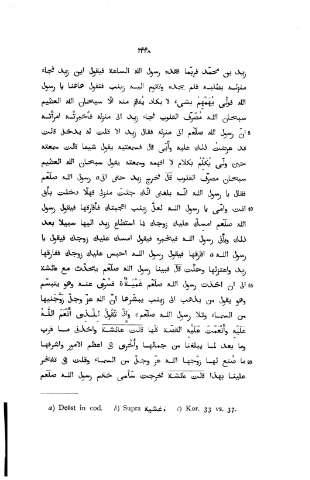 ١٤٦٠
زيد بن محمد فربما فقده رسول الله الساعة فيقول اين زيد فجاء
منزله يطلبه فلم يجده وتقوم اليه زينب فتقول هاهنا يا رسول
الله فولى يهمهم بشىء لا يكاد يفهم منه الا سبحان الله العظيم
سبحان الله مصرف القلوب فجاء زيد الى منزله فأخبرته امرأته
ان رسول الله صلعم اتى منزله فقال زيد الا قلت له يدخل قالت
قد عرضت ذلك عليه وأبى قال فسمعتيه يقول شيئا قالت سمعته
حين ولى يكلم بكلام لا افهمه وسمعته يقول سبحان الله العظيم
سبحان مصرف القلوب قال فخرج زيد حتى اتى رسول الله صلعم
فقال يا رسول الله انه بلغنى انك جئت منزلى فهلا دخلت بأبى
انت وامى يا رسول الله لعل زينب اعجبتك فأفارقها فيقول رسول
الله صلعم امسك عليك زوجك فما استطاع زيد اليها سبيلا بعد
ذلك ويأتى رسول الله فيخبره فيقول امسك عليك زوجك فيقول يا
رسول الله افارقها فيقول رسول الله احبس عليك زوجك ففارقها
زيد واعتزلها وحلت قال فبينا رسول الله صلعم يتحدث مع عائشة
الى ان اخذت رسول الله صلعم غميلة فسرى عنه وهو يتبسم
وهو يقول من يذهب الى زينب يبشرها ان الله عز وجل زوجنيها
من السماء وتلا رسول الله صلعم وإذ تقول للذى أنعم الله
عليه وأنعمت عليه القصة كلها قالت عائشة وأخذنى ما قرب
وما بعد لما يبلغنا من جمالها وأخرى هى اعظم الامور واشرفها
ما صنع لها زوجها الله عز وجل من السماء وقلت هى تفاخر
علينا بهذا قالت عائشة فخرجت سلمى خادم رسول الله صلعم
a) Deëst in cod. b) Supra عشية. c) Kor. 33 vs. 37.